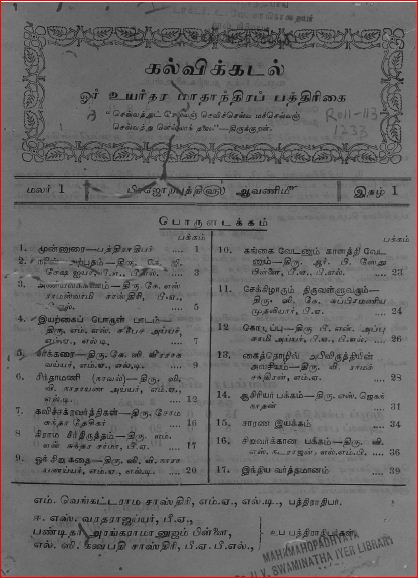 கல்விக்கடல்
ஓர் உயர்தர மாதாந்திரப் பத்திரிகை
"செல்வத்துட் செல்வஞ் செவிச்செல்வ மச்செல்வஞ்
செல்வத்து ளெல்லாந் தலை"—திருக்குறள்.
R011-113
1233
மலர் 1
ஆவணிமீ
இதழ் 1
பொருளடக்கம்
பக்கம்
1. முன்னுரை—பத்திராதிபர் .... 1
2. அற்புதம்—திரு. கே. ஜி.
சேஷ ஐயர், பி.ஏ., பி.எல். .... 3
3. திரு. கே. எஸ்.
ராமஸ்வாமி சாஸ்திரி, பி.ஏ.,
பி.எல். .... 5
4. இயற்கைப் பொருள் பாடம்—
திரு. எம். எஸ். சபேச அய்யர்,
எம்.ஏ., எல்.டி. .... 7
5. திரு. கே. ஸி. வீரராகவ
அய்யர், எம்.ஏ., எல்.டி. .... 9
6. சிந்தாமணி (நாவல்)—திரு. வி.
வி. நாராயண அய்யர், எம்.ஏ.,
எல்.டி. .... 12
7. கவிச்சக்ரவர்த்திகள்—திரு. சோம
சுந்தர தேசிகர் .... 16
8. கிராம சீர்திருத்தம்—திரு. எம்.
எஸ். சுந்தர சர்மா, பி.ஏ. .... 17
9. ஓர் சிறுகதை—திரு. வி. வி. நாரா
யணய்யர், எம்.ஏ., எல்.டி. .... 20
பக்கம்
10. கங்கை வேடனும் காளத்தி வேட
னும்—திரு. ஆர். பி. சேது
பிள்ளை, பி.ஏ., பி.எல். .... 23
11. சேக்கிழாரும் திருவள்ளுவரும்—
திரு. வி. கே. சுப்பிரமணிய
முதலியார், பி.ஏ. .... 24
12. திரு. பி. என். அப்பு
சாமி அய்யர், பி.ஏ., பி.எல். .... 26
13. கைத்தொழில் அபிவிருத்தியின்
அவசியம்—திரு. வி. ராமச்
சந்திரன், எம்.ஏ. .... 28
14. ஆசிரியர் பக்கம்—திரு. எஸ். ஜெகந்
நாதன் .... 31
15. சாரண இயக்கம் .... 34
16. சிறுவர்க்கான பக்கம்—திரு. வி.
எஸ். நடராஜன், எல்.எம்.பி. .... 36
17. இந்திய வர்த்தமானம் .... 39
எம். வெங்கட்டராம சாஸ்திரி, எம்.ஏ., எல்.டி., பத்திராதிபர்.
ஈ. எஸ். வரதராஜய்யர், பி.ஏ.,
பண்டிதர் அரங்கராமானுஜம் பிள்ளை,
எல். ஸி. கணபதி சாஸ்திரி, பி.ஏ. பி.எல்.,
உப பத்திராதிபர்கள்.
MAHAMAHOPADHYAYA
Dr. U. V. SWAMINATHA IYER LIBRARY